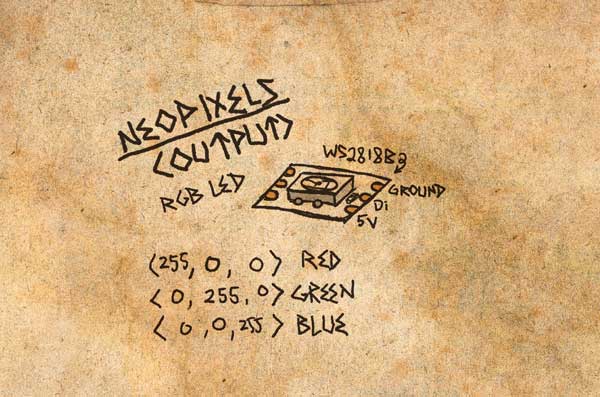 NEOPIXELS
(OUTPUT)
WS2818B
RGB LED
GROUND
Di
5V
(255, 0, 0) RED
(0, 255, 0) GREEN
(0, 0, 255) BLUE